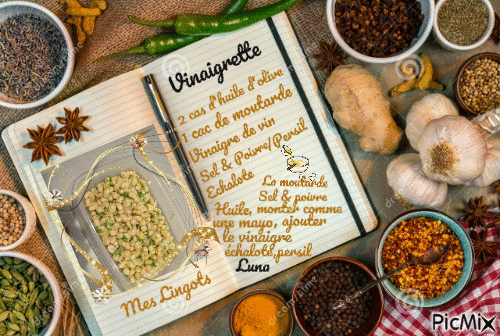 Vinaigrette
2 cas d'huile d'olive
1 cac de moutarde
Vinaigre de vin
Sel & Poivre/Persil
Echalote
La moutarde
Sel & poivre
Huile, monter comme
une mayo, ajouter
le vinaigre
échalote,persil
Luna
Mes Lingots
PicMix